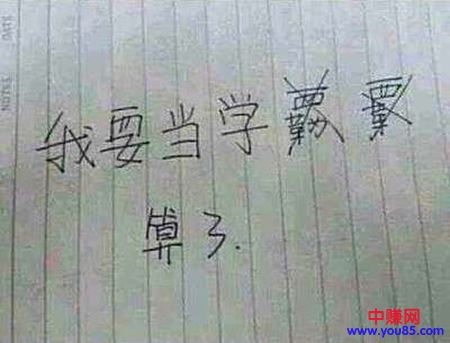 我要当学
算了.
中赚网
www.you85.com
NOTES
DATE